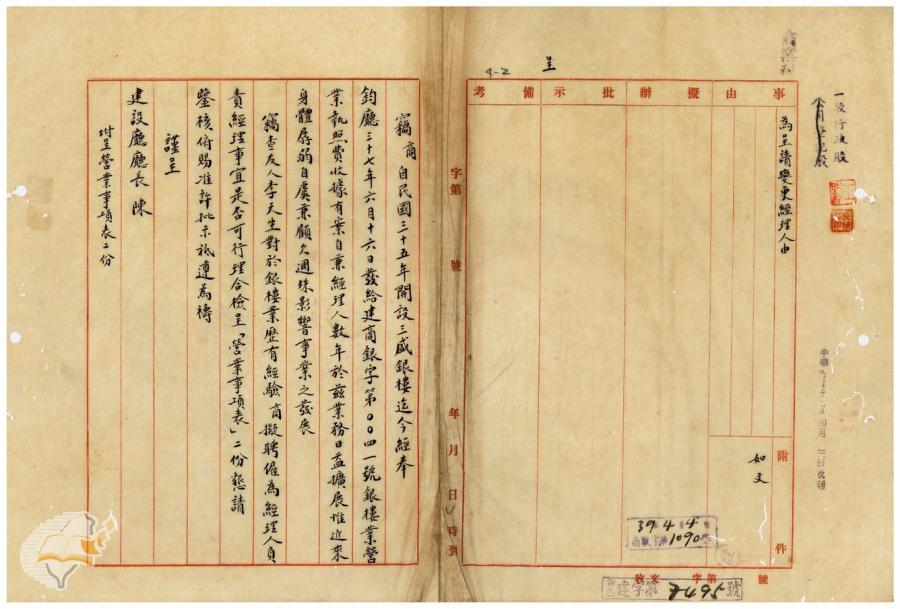 呈
4-2
事由
擬辦
批示
備考
為呈請變更經理人由
附件
如文
39 4 4
1090
字第　號
年　月　日　時到
收文　字第　號
建字第7495號
竊商自民國三十五年開設三盛銀樓迄今經奉
鈞廳三十七年六月十六日發給建商銀字第００四一號銀樓業營
業執照費收據有案自兼經理人數年於茲業務日益擴展惟近來
身體孱弱自虞兼顧欠週殊影響事業之發展
竊查友人李天生對於銀樓業歷有經驗商擬聘僱為經理人員
責經理事宜是否可行理合檢呈「營業事項表」二份懇請
鑒核俯賜准許批示祗遵為禱
謹呈
建設廳廳長　陳
附呈營業事項表二份